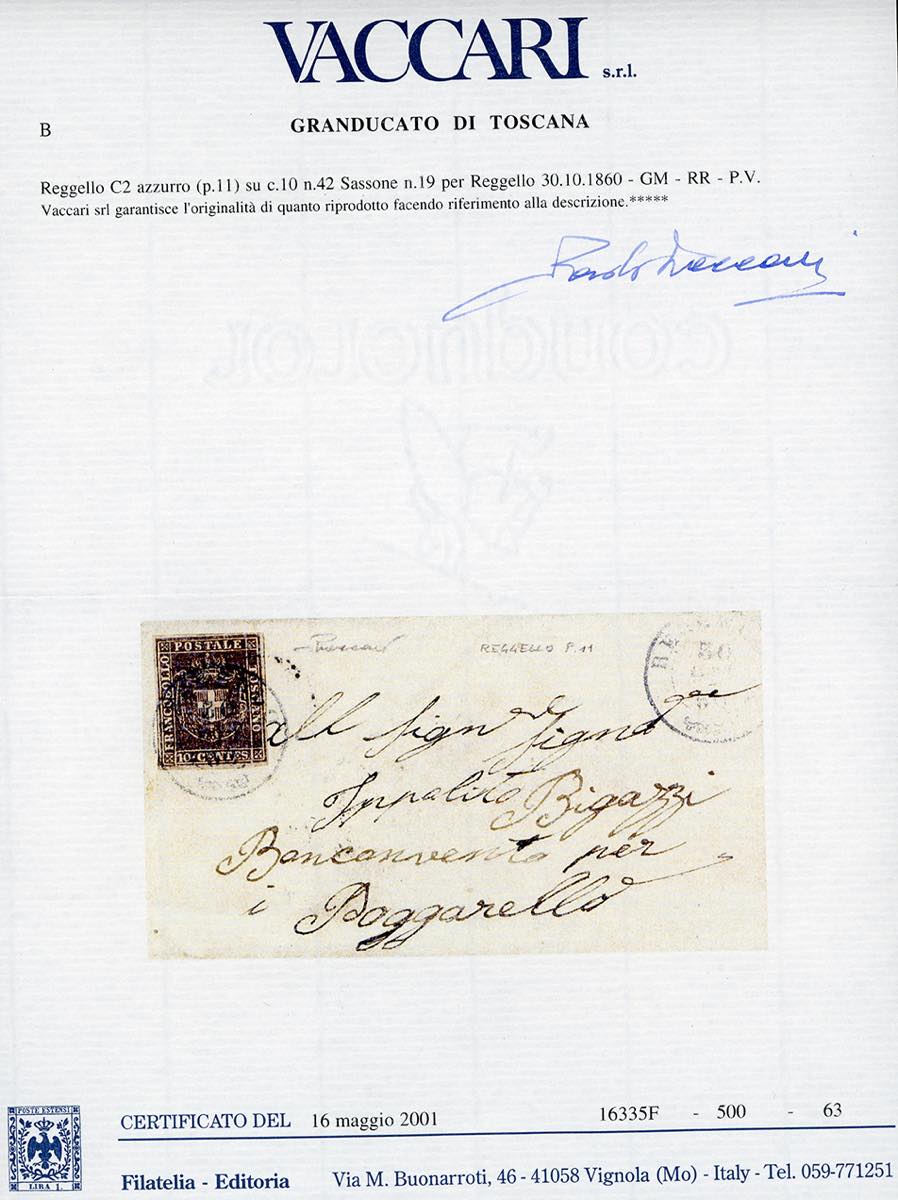 VACCARI s.r.l.
B
GRANDUCATO DI TOSCANA
Reggello C2 azzurro (p.11) su c.10 n.42 Sassone n.19 per Reggello 30.10.1860 - GM - RR - P.V.
Vaccari srl garantisce l'originalità di quanto riprodotto facendo riferimento alla descrizione.*****
Paolo Vaccari
FRANCOBOLLO POSTALE TOSCANO
10 CENTES
REGGELLO P.11
30
all Sign Signe
Ippolito Bigazzi
Bonconvento per
i Poggarello
POSTE ESTENSI
LIRA 1.
CERTIFICATO DEL 16 maggio 2001 16335F - 500 - 63
Filatelia - Editoria Via M. Buonarroti, 46 - 41058 Vignola (Mo) - Italy - Tel. 059-771251